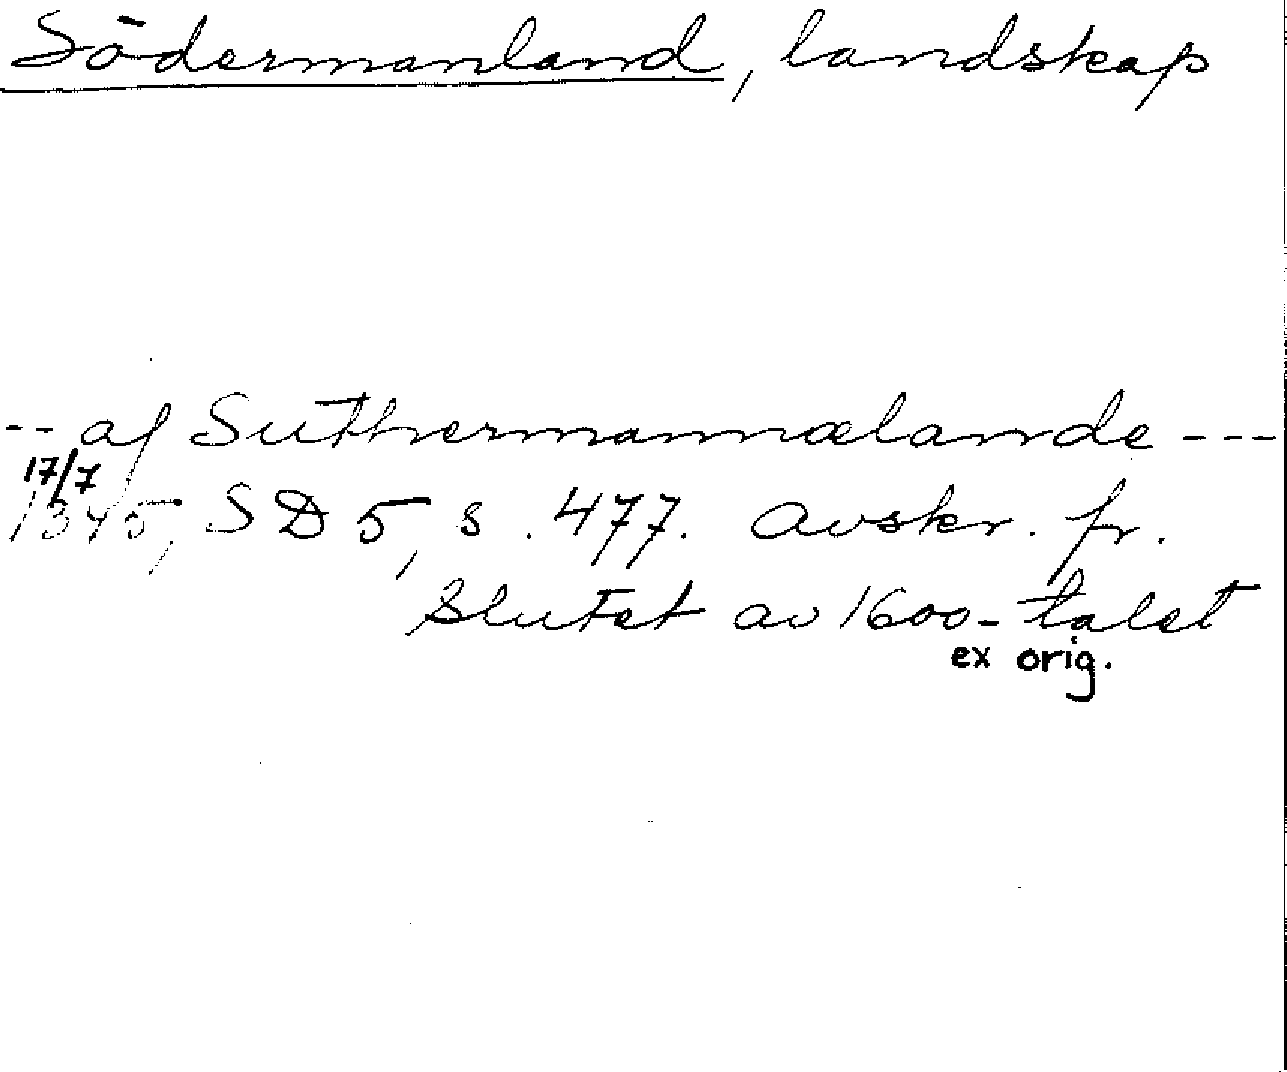 Södermanland, landskap
-- af Suthermannælande ---
17/7
1345, SD 5, s. 477. Avskr. fr.
slutet av 1600-talet
ex orig.